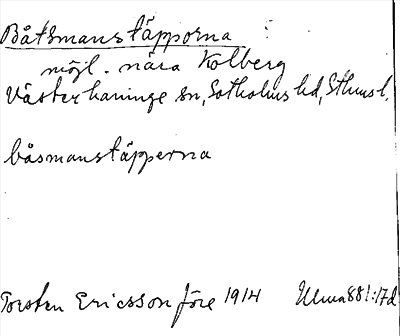 Båtsmanstäpporna :
möjl. nära Kolberg
Västerhaninge sn, Sotholms hd, Sthms l.
båsmanstäpperna
Torsten Ericsson före 1914 Ulma 881:17d